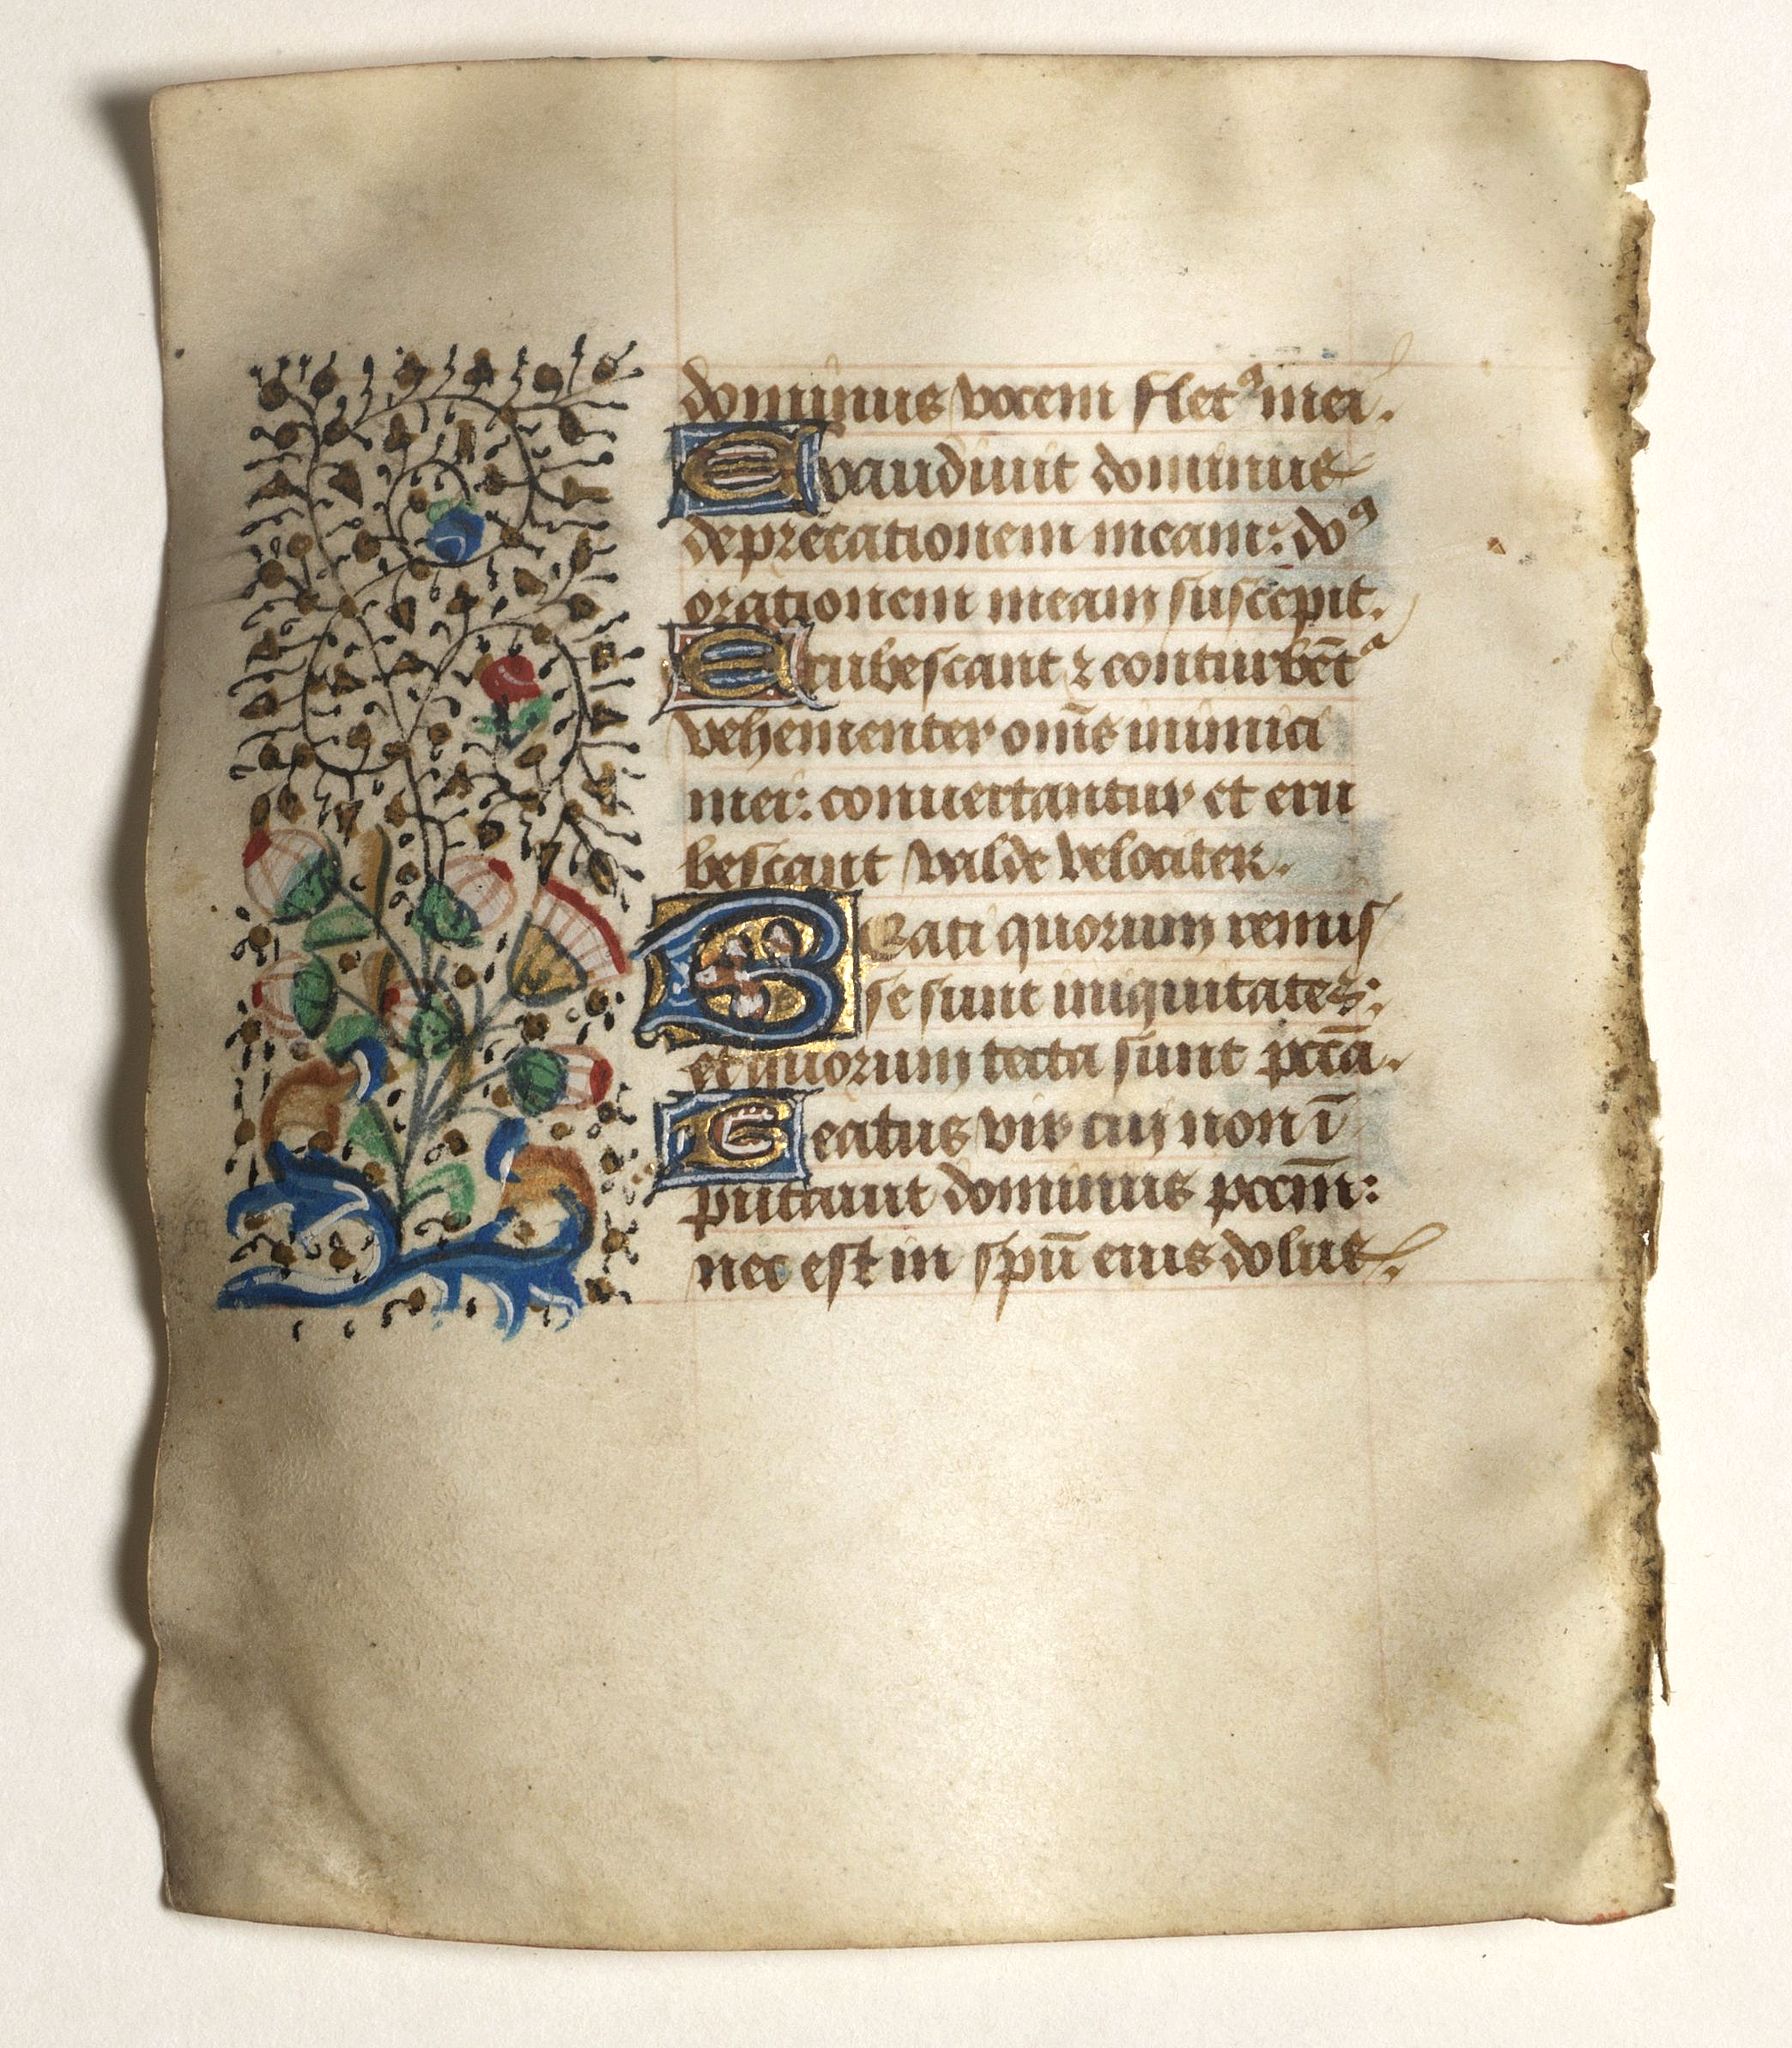 dominus vocem fletꝰ mei.
Exaudiuit dominus
deprecationem meam: doꝰ
orationem meam suscepit.
Erubescant ⁊ conturbēt᷑
vehementer om̄s inimici
mei: conuertantur et eru
bescant valde velociter.
BEati quorum remis
se sunt iniquitates:
et quorum tecta sunt pctā.
Beatus vir cui non ī
putauit dominus pccm̄:
nec est in spū eius dolus.